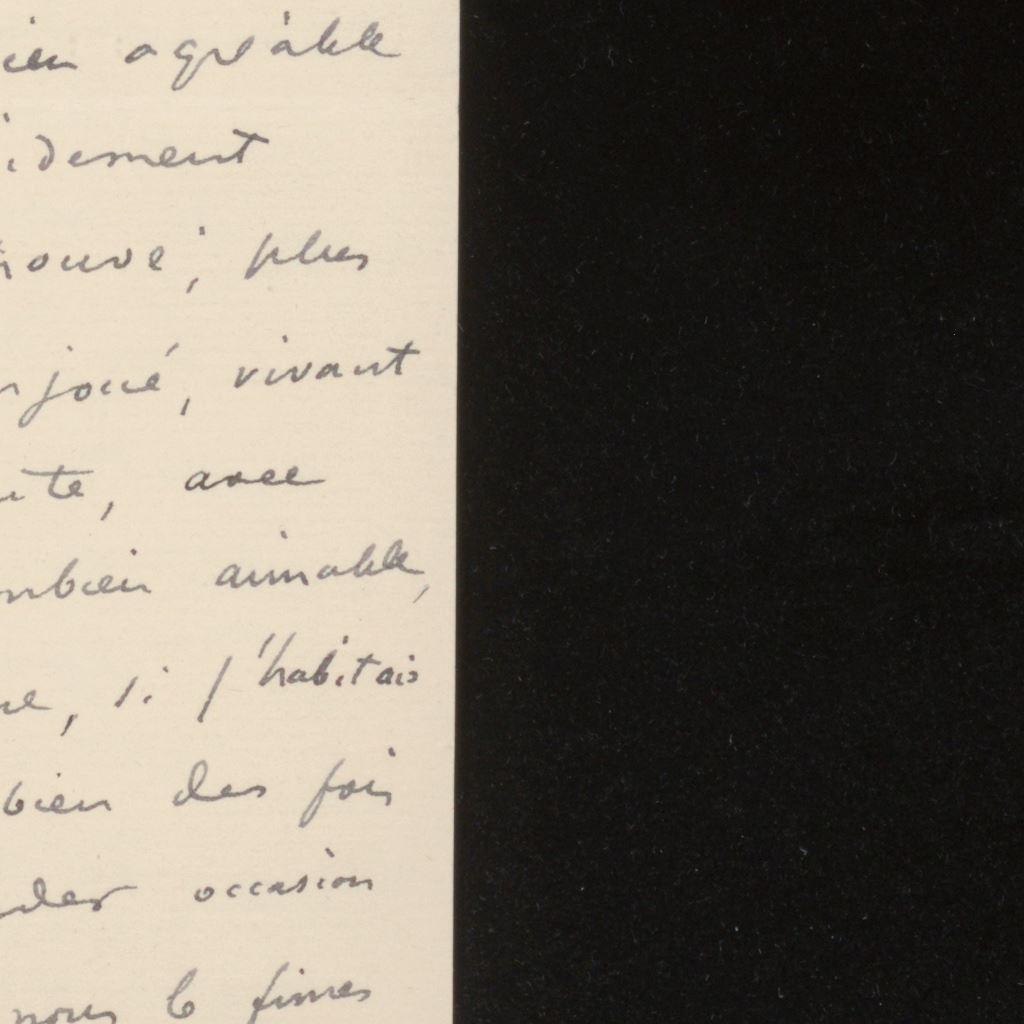 ien agréable
idement
rouvé, plus
njoué, vivant
ute, avec
mbien aimable,
ne, si j'habitais
bien des fois
der occasion
nous le fîmes